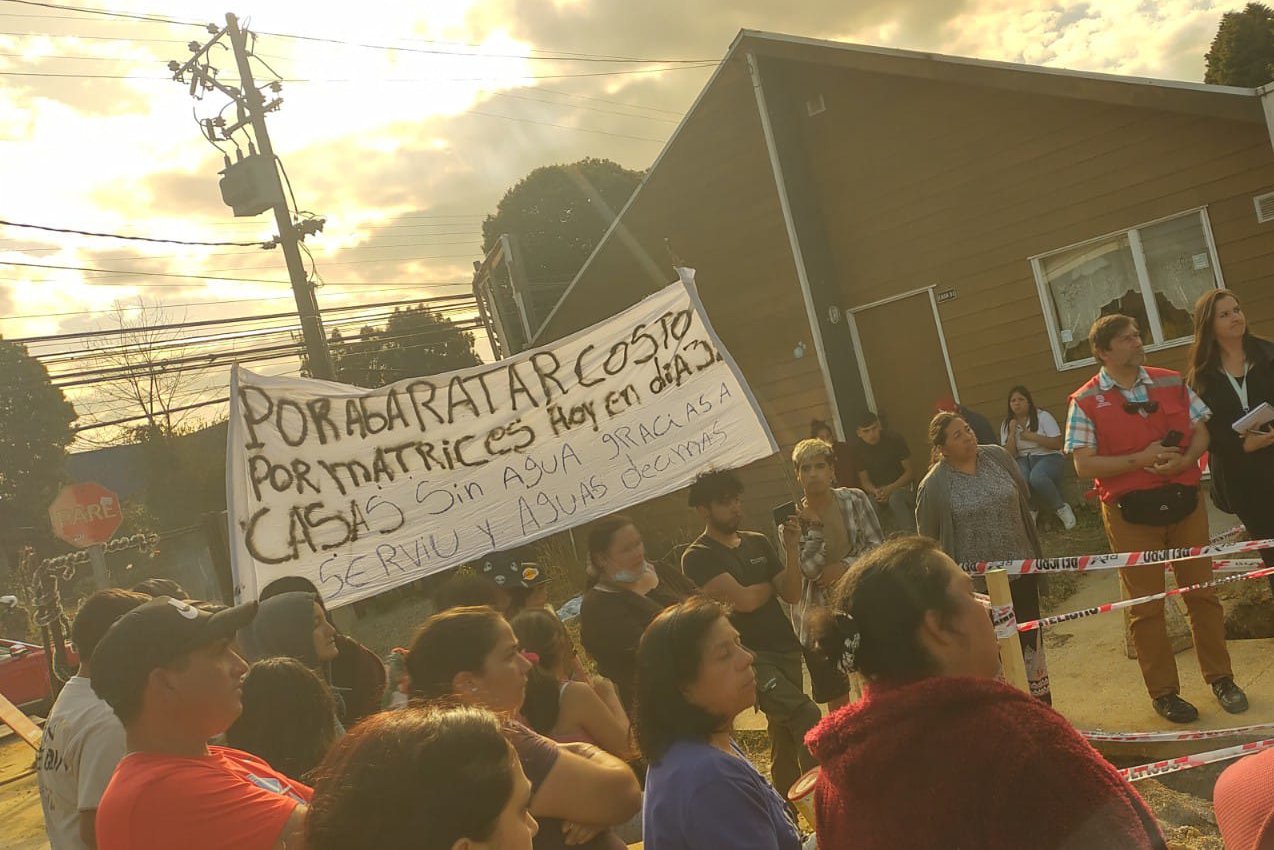 POR ABARATAR COSTO
POR MATRICES HOY EN DIA 3.
CASAS SIN AGUA GRACIAS A
SERVIU Y AGUAS DECIMAS
PARE
PELIGRO